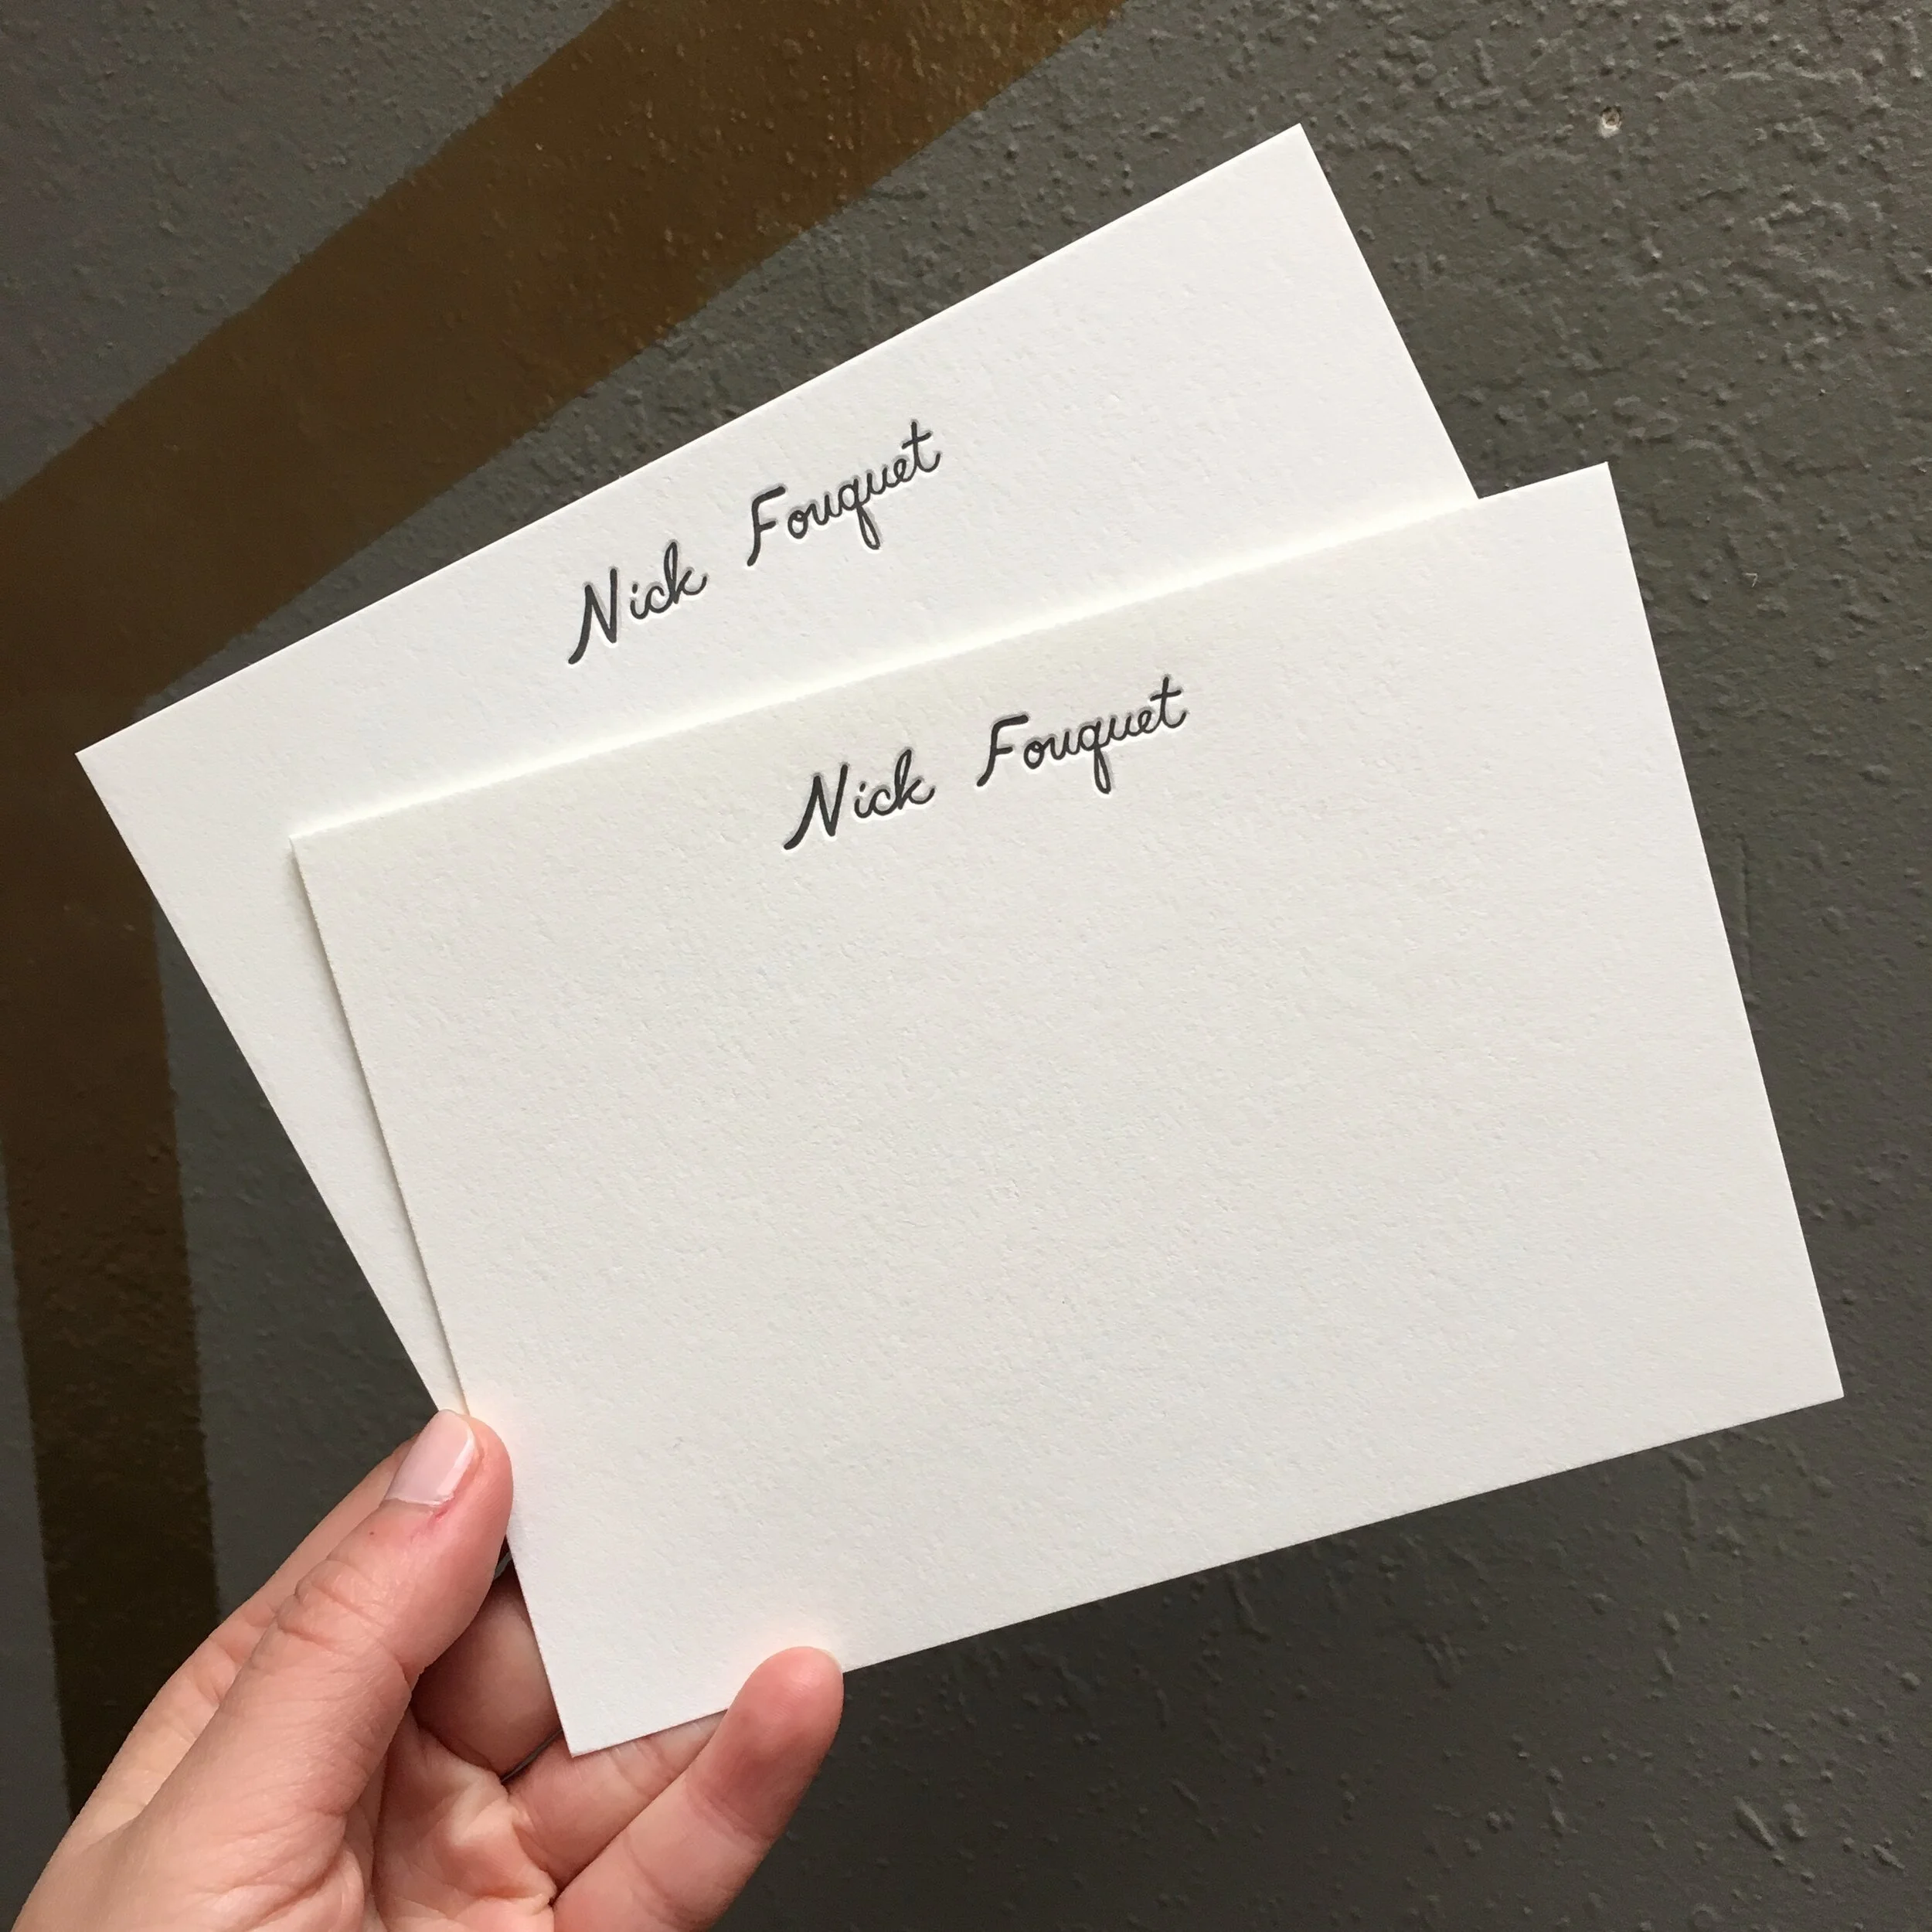 Nick Fouquet
Nick Fouquet